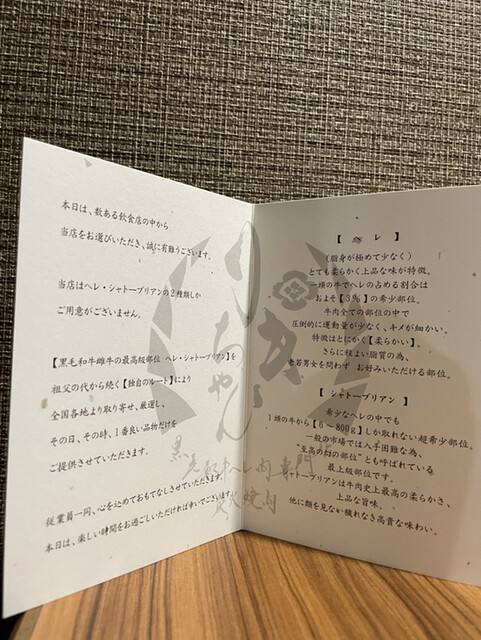 本日は、数ある飲食店の中から
当店をお選びいただき、誠に有難うございます。
当店はヘレ・シャトーブリアンの2種類しか
ご用意がございません。
【黒毛和牛雌牛の最高級部位 ヘレ・シャトーブリアン】を
祖父の代から続く【独自のルート】により
全国各地より取り寄せ、厳選し、
その日、その時、1番良い品物だけを
ご提供させていただきます。
従業員一同、心を込めておもてなしさせていただきます。
本日は、楽しい時間をお過ごしいただければ幸いでございます
【 ヘ レ 】
(脂身が極めて少なく)
とても柔らかく上品な味が特徴。
一頭の牛でヘレの占める割合は
およそ【3%】の希少部位。
牛肉全ての部位の中で
圧倒的に運動量が少なく、キメが細かい。
特徴はとにかく【柔らかい】。
さらに程よい脂質の為、
老若男女を問わず お好みいただける部位。
【 シャトーブリアン 】
希少なヘレの中でも
1頭の牛から【6~800g】しか取れない超希少部位。
一般の市場では入手困難な為、
"至高の幻の部位"とも呼ばれている
最上級部位です。
シャトーブリアンは牛肉史上最高の柔らかさ、
上品な旨味。
他に類を見ない穢れなき高貴な味わい。